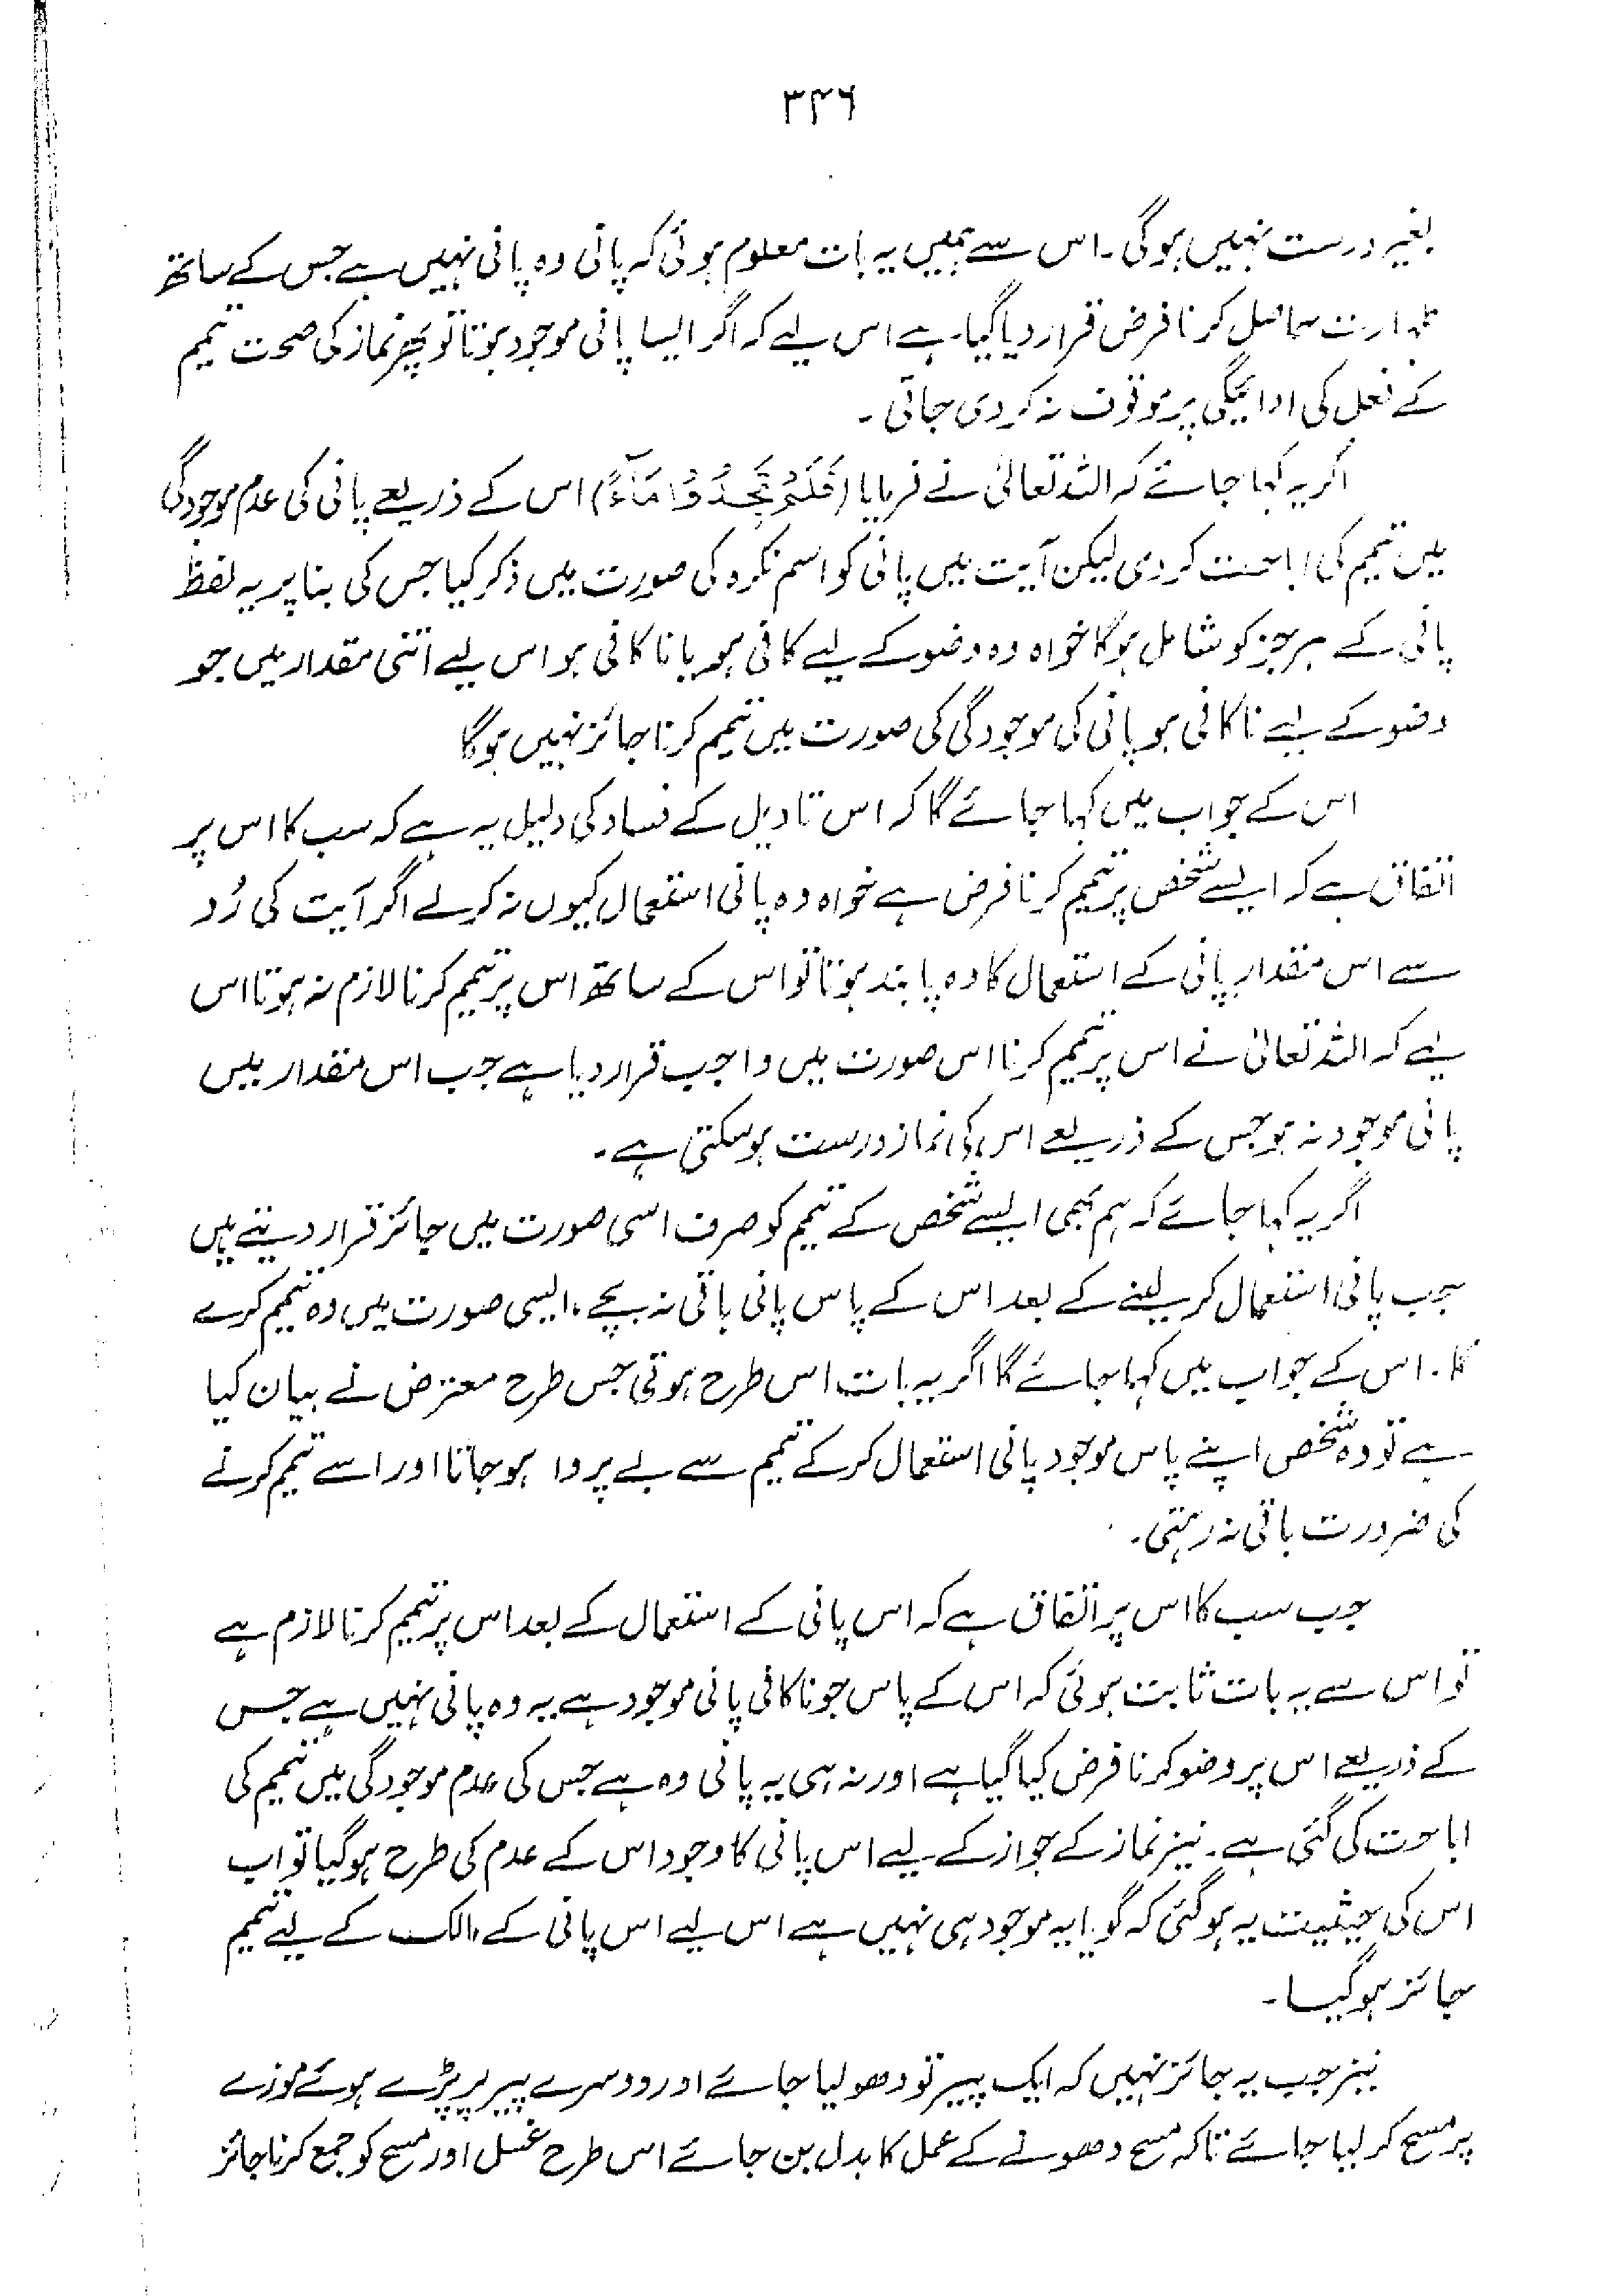 ۳۴۶
بغیر درست نہیں ہوگی۔ اس سے ہمیں یہ بات معلوم ہوئی کہ پانی وہ پانی نہیں ہے جس کے ساتھ
طہارت حاصل کرنا فرض قرار دیا گیا ہے اس لیے کہ اگر ایسا پانی موجود ہوتا تو پھر نماز کی صحت تیمم
کے فعل کی ادائیگی پر موقوف نہ کر دی جاتی۔
اگر یہ کہا جائے کہ اللہ تعالیٰ نے فرمایا (فَلَمْ تَجِدُوْا مَآءً) اس کے ذریعے پانی کی عدم موجودگی
میں تیمم کی اباحت کر دی لیکن آیت میں پانی کو اسم نکرہ کی صورت میں ذکر کیا جس کی بنا پر یہ لفظ
پانی کے ہر جز کو شامل ہوگا خواہ وہ وضو کے لیے کافی ہو یا ناکافی ہو اس لیے اتنی مقدار میں جو
وضو کے لیے ناکافی ہو پانی کی موجودگی کی صورت میں تیمم کرنا جائز نہیں ہوگا
اس کے جواب میں کہا جائے گا کہ اس تاویل کے فساد کی دلیل یہ ہے کہ سب کا اس پر
اتفاق ہے کہ ایسے شخص پر تیمم کرنا فرض ہے خواہ وہ پانی استعمال کیوں نہ کرلے اگر آیت کی رُو
سے اس مقدار پانی کے استعمال کا وہ پابند ہوتا تو اس کے ساتھ اس پر تیمم کرنا لازم نہ ہوتا اس
لیے کہ اللہ تعالیٰ نے اس پر تیمم کرنا اس صورت میں واجب قرار دیا ہے جب اس مقدار میں
پانی موجود نہ ہو جس کے ذریعے اس کی نماز درست ہوسکتی ہے۔
اگر یہ کہا جائے کہ ہم بھی ایسے شخص کے تیمم کو صرف اسی صورت میں جائز قرار دیتے ہیں
جب پانی استعمال کر لینے کے بعد اس کے پاس پانی باقی نہ بچے، ایسی صورت میں وہ تیمم کرے
گا۔ اس کے جواب میں کہا جائے گا اگر یہ بات اس طرح ہوتی جس طرح معترض نے بیان کیا
ہے تو وہ شخص اپنے پاس موجود پانی استعمال کرکے تیمم سے بے پروا ہو جاتا اور اسے تیمم کرنے
کی ضرورت باقی نہ رہتی۔
جب سب کا اس پر اتفاق ہے کہ اس پانی کے استعمال کے بعد اس پر تیمم کرنا لازم ہے
تو اس سے یہ بات ثابت ہوئی کہ اس کے پاس جو ناکافی پانی موجود ہے یہ وہ پانی نہیں ہے جس
کے ذریعے اس پر وضو کرنا فرض کیا گیا ہے اور نہ ہی یہ پانی وہ ہے جس کی عدم موجودگی میں تیمم کی
اباحت کی گئی ہے۔ نیز نماز کے جواز کے لیے اس پانی کا وجود اس کے عدم کی طرح ہوگیا تو اب
اس کی حیثیت یہ ہوگئی کہ گویا یہ موجود ہی نہیں ہے اس لیے اس پانی کے مالک کے لیے تیمم
جائز ہوگیا۔
نیز جب یہ جائز نہیں کہ ایک پیر تو دھو لیا جائے اور دوسرے پیر پر پڑے ہوئے موزے
پر مسح کر لیا جائے تاکہ مسح دھونے کے عمل کا بدل بن جائے اس طرح غسل اور مسح کو جمع کرنا جائز